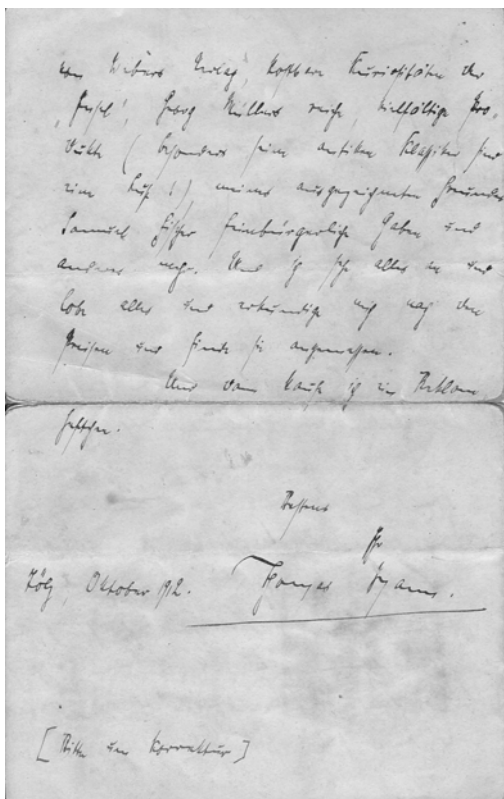 von Webers Verlag, kostbare Kuriositäten der
„Insel“, Georg Müllers reiche, vielfältige Pro-
dukte (besonders seine antiken Klassiker sind
ein !) meines ausgezeichneten Freundes
Samuel Fischer feinbürgerliche Gaben und
anderes mehr. Und ich sehe alles an und
lobe alles und erkundige mich nach den
Preisen und finde sie angemessen.
Und dann kaufe ich ein Reklam
heftchen.
Bestens
Ihr
Tölz, Oktober 1912. Thomas Mann.
[Bitte um Korrektur]